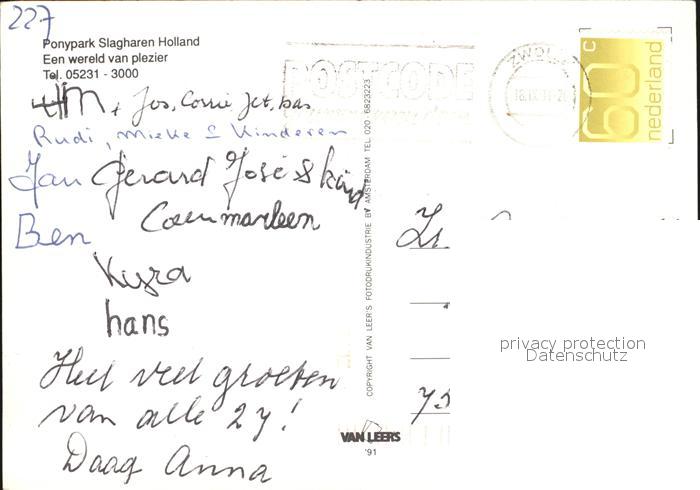 227
Ponypark Slagharen Holland
Een wereld van plezier
Tel. 05231 - 3000
Jos, Corrie, Jet, bas
Rudi, Mieke & Kinderen
Jan Gerard José & kind
Coen marleen
Ben
Kyra
hans
Heel veel groeten
van alle 27!
Daag Anna
POSTCODE
ZWOLLE
60 c
nederland
COPYRIGHT VAN LEER'S FOTODRUKINDUSTRIE BV AMSTERDAM TEL. 020 - 6823223
Zr.
privacy protection
Datenschutz
VAN LEERS
'91